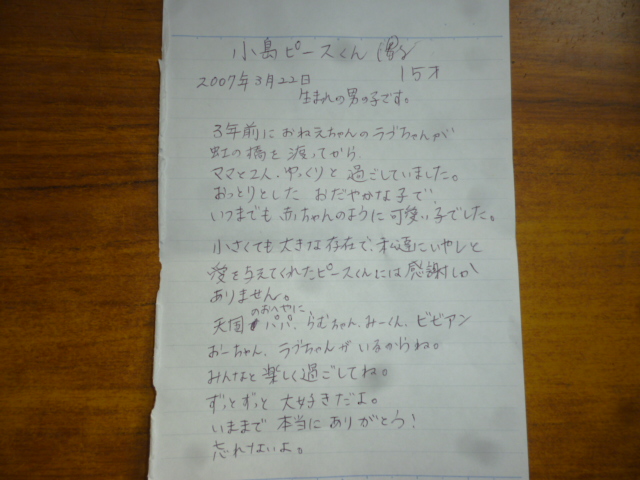 小島ピースくん
2007年3月22日 15才
生まれの男の子です。
3年前に おねえちゃんのラブちゃんが
虹の橋を 渡ってから
ママと2人、ゆっくりと 過ごしていました。
おっとりとした おだやかな子で
いつまでも 赤ちゃんのように可愛い子でした。
小さくても大きな存在で、私達にいやしと
愛を与えてくれたピースくんには感謝しか
ありません。
のおへやに、
天国 パパ、らむちゃん、みーくん、ビビアン
おーちゃん、ラブちゃんがいるからね。
みんなと楽しく過ごしてね。
ずっとずっと 大好きだよ。
いままで 本当に ありがとう!
忘れないよ。